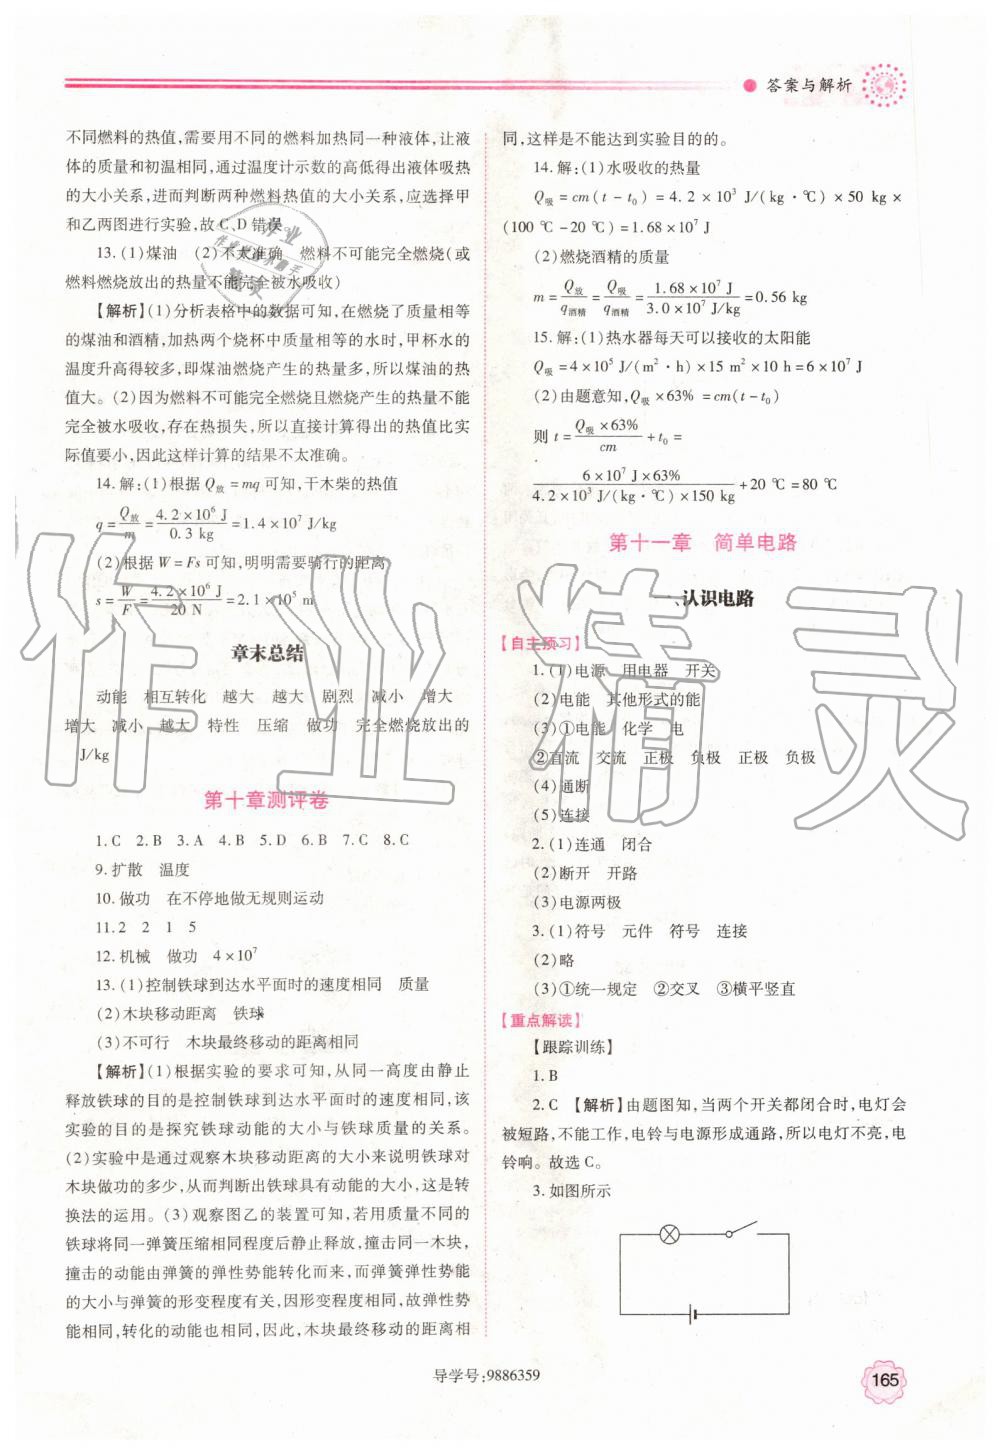 答案与解析
不同燃料的热值,需要用不同的燃料加热同一种液体,让液
体的质量和初温相同,通过温度计示数的高低得出液体吸热
的大小关系,进而判断两种燃料热值的大小关系,应选择甲
和乙两图进行实验,故C、D错误。
13.(1)煤油 (2)不太准确 燃料不可能完全燃烧(或
燃料燃烧放出的热量不能完全被水吸收)
【解析】(1)分析表格中的数据可知,在燃烧了质量相等
的煤油和酒精,加热两个烧杯中质量相等的水时,甲杯水的
温度升高得较多,即煤油燃烧产生的热量多,所以煤油的热
值大。(2)因为燃料不可能完全燃烧且燃烧产生的热量不能
完全被水吸收,存在热损失,所以直接计算得出的热值比实
际值要小,因此这样计算的结果不太准确。
14.解:(1)根据 Q放=mq 可知,干木柴的热值
q=Q放/m=4.2×10⁶ J/0.3 kg=1.4×10⁷ J/kg
(2)根据 W=Fs 可知,明明需要骑行的距离
s=W/F=4.2×10⁶ J/20 N=2.1×10⁵ m
章末总结
动能 相互转化 越大 越大 剧烈 减小 增大
增大 减小 越大 特性 压缩 做功 完全燃烧放出的
J/kg
第十章测评卷
1.C 2.B 3.A 4.B 5.D 6.B 7.C 8.C
9.扩散 温度
10.做功 在不停地做无规则运动
11.2 2 1 5
12.机械 做功 4×10⁷
13.(1)控制铁球到达水平面时的速度相同 质量
(2)木块移动距离 铁球
(3)不可行 木块最终移动的距离相同
【解析】(1)根据实验的要求可知,从同一高度由静止
释放铁球的目的是控制铁球到达水平面时的速度相同,该
实验的目的是探究铁球动能的大小与铁球质量的关系。
(2)实验中是通过观察木块移动距离的大小来说明铁球对
木块做功的多少,从而判断出铁球具有动能的大小,这是转
换法的运用。(3)观察图乙的装置可知,若用质量不同的
铁球将同一弹簧压缩相同程度后静止释放,撞击同一木块,
撞击的动能由弹簧的弹性势能转化而来,而弹簧弹性势能
的大小与弹簧的形变程度有关,因形变程度相同,故弹性势
能相同,转化的动能也相同,因此,木块最终移动的距离相
同,这样是不能达到实验目的的。
14.解:(1)水吸收的热量
Q吸=cm(t-t₀)=4.2×10³ J/(kg·℃)×50 kg×
(100 ℃-20 ℃)=1.68×10⁷ J
(2)燃烧酒精的质量
m=Q放/q酒精=Q吸/q酒精=1.68×10⁷ J/3.0×10⁷ J/kg=0.56 kg
15.解:(1)热水器每天可以接收的太阳能
Q吸=4×10⁵ J/(m²·h)×15 m²×10 h=6×10⁷ J
(2)由题意知,Q吸×63%=cm(t-t₀)
则 t=Q吸×63%/cm+t₀=
6×10⁷ J×63%/4.2×10³ J/(kg·℃)×150 kg+20 ℃=80 ℃
第十一章 简单电路
一、认识电路
【自主预习】
1.(1)电源 用电器 开关
(2)电能 其他形式的能
(3)①电能 化学 电
②直流 交流 正极 负极 正极 负极
(4)通断
(5)连接
2.(1)连通 闭合
(2)断开 开路
(3)电源两极
3.(1)符号 元件 符号 连接
(2)略
(3)①统一规定 ②交叉 ③横平竖直
【重点解读】
【跟踪训练】
1.B
2.C 【解析】由题图知,当两个开关都闭合时,电灯会
被短路,不能工作,电铃与电源形成通路,所以电灯不亮,电
铃响。故选C。
3.如图所示
导学号:9886359
165
作业精灵